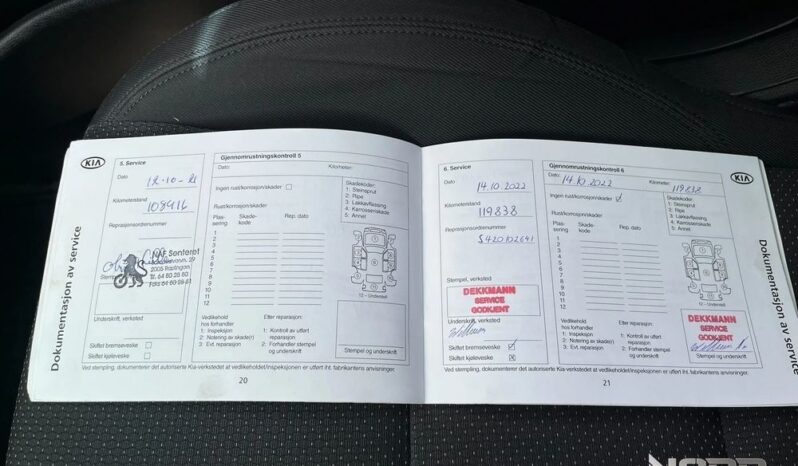 KIA
5. Service
Dato
12.10-21
Kilometerstand
108416
Reprasjonsordrenummer
NAF Senteret
2005 Rælingen
Underskrift, verksted
Skiftet bremsevæske
Skiftet kjølevæske
Gjennomrustningskontroll 5
Dato:
Kilometer:
Ingen rust/korrosjon/skader
Rust/korrosjon/skader
Plas-
sering
Skade-
kode
Rep. dato
1
2
3
4
5
6
7
8
9
10
11
12
Skadekoder:
1: Steinsprut
2: Ripe
3: Lakkavflassing
4: Karosseriskade
5: Annet
12 - Understell
Vedlikehold
hos forhandler
1: Inspeksjon
2: Notering av skade(r)
3: Evt. reparasjon
Etter reparasjon:
1: Kontroll av utført
reparasjon
2: Forhandler stempel
og underskrift
Stempel og underskrift
Ved stempling, dokumenterer det autoriserte Kia-verkstedet at vedlikeholdet/inspeksjonen er utført iht. fabrikantens anvisninger.
20
Dokumentasjon av service
6. Service
Dato
14.10.2022
Kilometerstand
119838
Reprasjonsordrenummer
S420102641
Stempel, verksted
DEKKMANN
SERVICE
GODKJENT
Underskrift, verksted
Skiftet bremsevæske
Skiftet kjølevæske
Gjennomrustningskontroll 6
Dato:
14.10.2022
Kilometer:
119838
Ingen rust/korrosjon/skader
Rust/korrosjon/skader
Plas-
sering
Skade-
kode
Rep. dato
1
2
3
4
5
6
7
8
9
10
11
12
Skadekoder:
1: Steinsprut
2: Ripe
3: Lakkavflassing
4: Karosseriskade
5: Annet
12 - Understell
Vedlikehold
hos forhandler
1: Inspeksjon
2: Notering av skade(r)
3: Evt. reparasjon
Etter reparasjon:
1: Kontroll av utført
reparasjon
2: Forhandler stempel
og underskrift
DEKKMANN
SERVICE
GODKJENT
Stempel og underskrift
Ved stempling, dokumenterer det autoriserte Kia-verkstedet at vedlikeholdet/inspeksjonen er utført iht. fabrikantens anvisninger.
21
KIA
Dokumentasjon av service